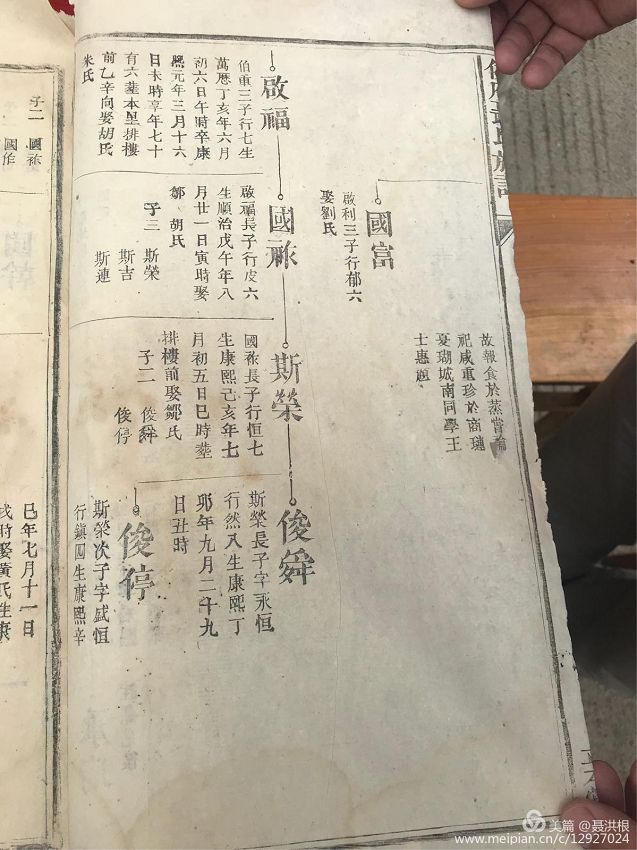 故報食於蒸嘗論
祀咸重珍於商璉
夏瑚城南同學王
士惠題
國富
啟利三子行郁六
娶劉氏
啟福
伯重三子行七生
萬曆丁亥年六月
初六日午時卒康
熙元年三月十六
日未時享年七十
有六葬本里排樓
前乙辛向娶胡氏
朱氏
國祢
啟福長子行皮六
生順治戊午年八
月廿一日寅時娶
鄒 胡氏
子三 斯榮
斯吉
斯連
斯榮
國祢長子行恒七
生康熙己亥年七
月初五日巳時葬
排樓前娶鄒氏
子二 俊舜
俊停
俊舜
斯榮長子字永恒
行然八生康熙丁
卯年九月二十九
日丑時
俊停
斯榮次子字盛恒
行鎮四生康熙辛
子二 國祢
國作
巳年七月十一日
戌時娶黃氏生康
美篇 @聂洪根
www.meipian.cn/c/12927024